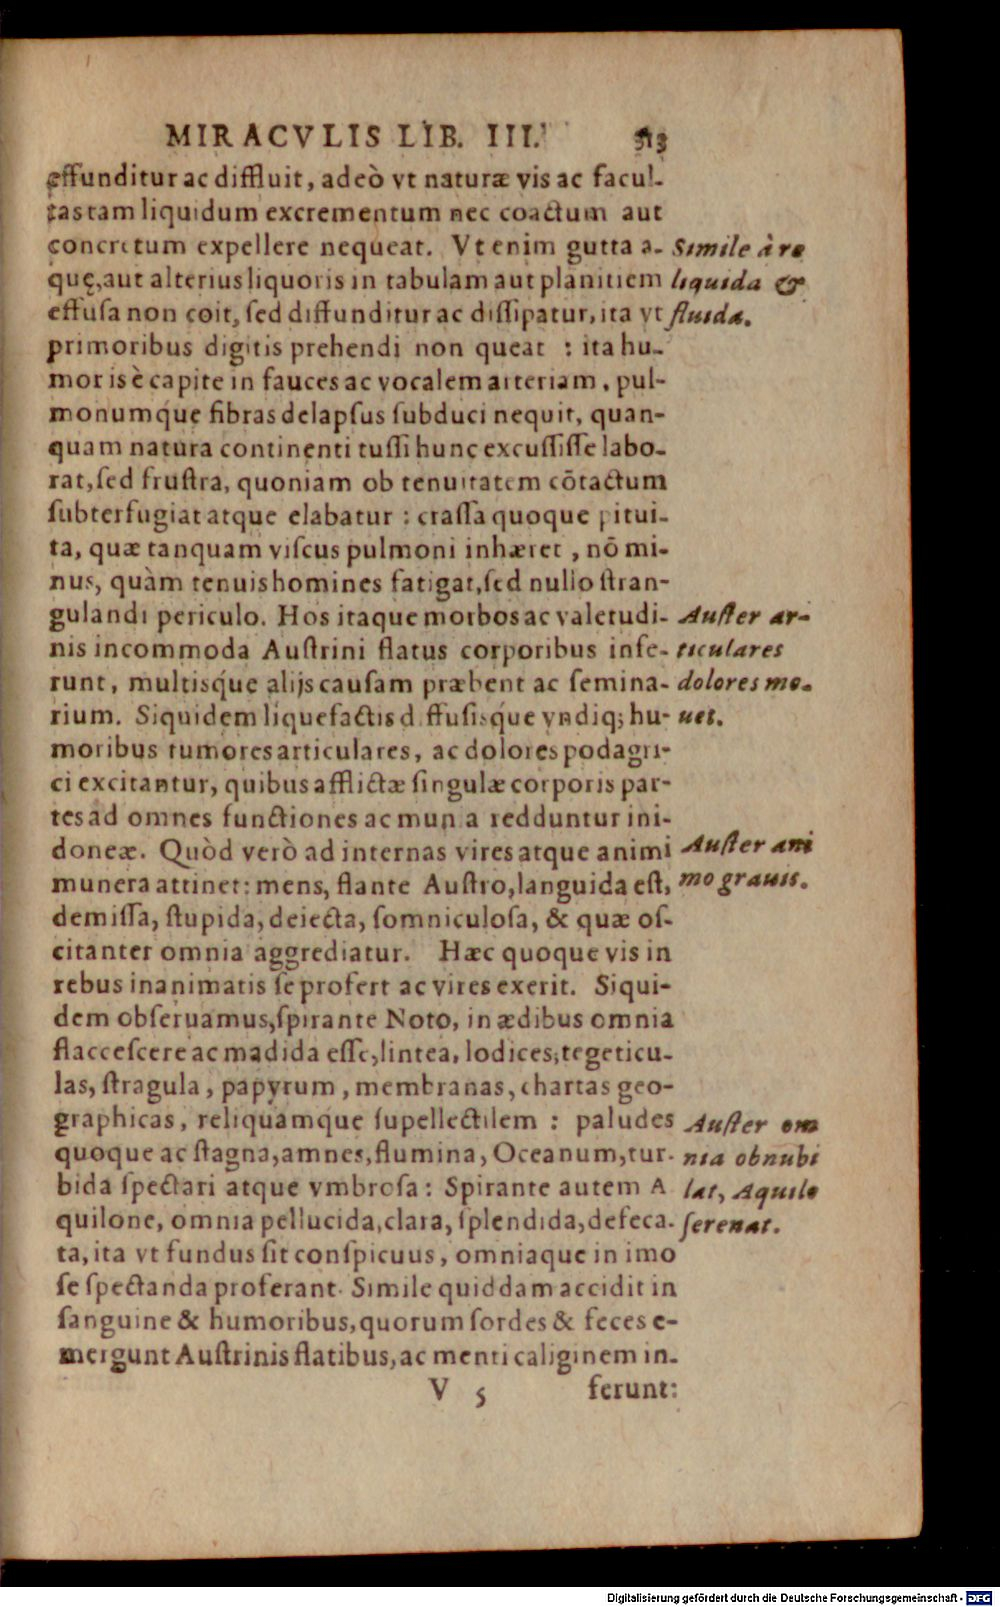 MIRACVLIS LIB. III. 313
effunditur ac diffluit, adeò vt naturæ vis ac facul-
tas tam liquidum excrementum nec coactum aut
concretum expellere nequeat. Vt enim gutta a-
quę, aut alterius liquoris in tabulam aut planitiem
effusa non coit, sed diffunditur ac dissipatur, ita vt
primoribus digitis prehendi non queat : ita hu-
mor is è capite in fauces ac vocalem arteriam, pul-
monumq́ue fibras delapsus subduci nequit, quan-
quam natura continenti tussi hunc excussisse labo-
rat, sed frustra, quoniam ob tenuitatem cōtactum
subterfugiat atque elabatur : crassa quoque pitui-
ta, quæ tanquam viscus pulmoni inhæret, nō mi-
nus, quàm tenuis homines fatigat, sed nullo stran-
gulandi periculo. Hos itaque morbos ac valetudi-
nis incommoda Austrini flatus corporibus infe-
runt, multisq́ue alijs causam præbent ac semina-
rium. Siquidem liquefactis diffusisq́ue vndiq; hu-
moribus tumores articulares, ac dolores podagri-
ci excitantur, quibus afflictæ singulæ corporis par-
tes ad omnes functiones ac munia redduntur ini-
doneæ. Quòd verò ad internas vires atque animi
munera attinet: mens, flante Austro, languida est,
demissa, stupida, deiecta, somniculosa, & quæ os-
citanter omnia aggrediatur. Hæc quoque vis in
rebus inanimatis se profert ac vires exerit. Siqui-
dem obseruamus, spirante Noto, in ædibus omnia
flaccescere ac madida esse, lintea, lodices, tegeticu-
las, stragula, papyrum, membranas, chartas geo-
graphicas, reliquamque supellectilem : paludes
quoque ac stagna, amnes, flumina, Oceanum, tur-
bida spectari atque vmbrosa : Spirante autem A
quilone, omnia pellucida, clara, splendida, defeca-
ta, ita vt fundus sit conspicuus, omniaque in imo
se spectanda proferant. Simile quiddam accidit in
sanguine & humoribus, quorum sordes & feces e-
mergunt Austrinis flatibus, ac menti caliginem in-
V 5 ferunt:
Simile à re
liquida &
fluida.
Auster ar-
ticulares
dolores mo-
uet.
Auster ani
mo grauis.
Auster om
nia obnubi
lat, Aquilo
serenat.
Digitalisierung gefördert durch die Deutsche Forschungsgemeinschaft - DFG